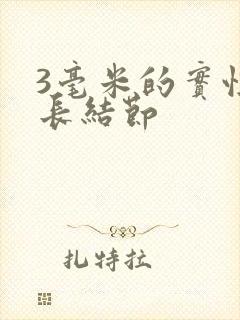 3毫米的實性
長結節
扎特拉